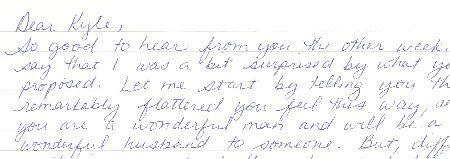 Dear Kyle,
So good to hear from you the other week.
say that I was a bit surprised by what yo
proposed. Let me start by telling you th
remarkably flattered you feel this way, a
you are a wonderful man and will be a
wonderful husband to someone. But, diff